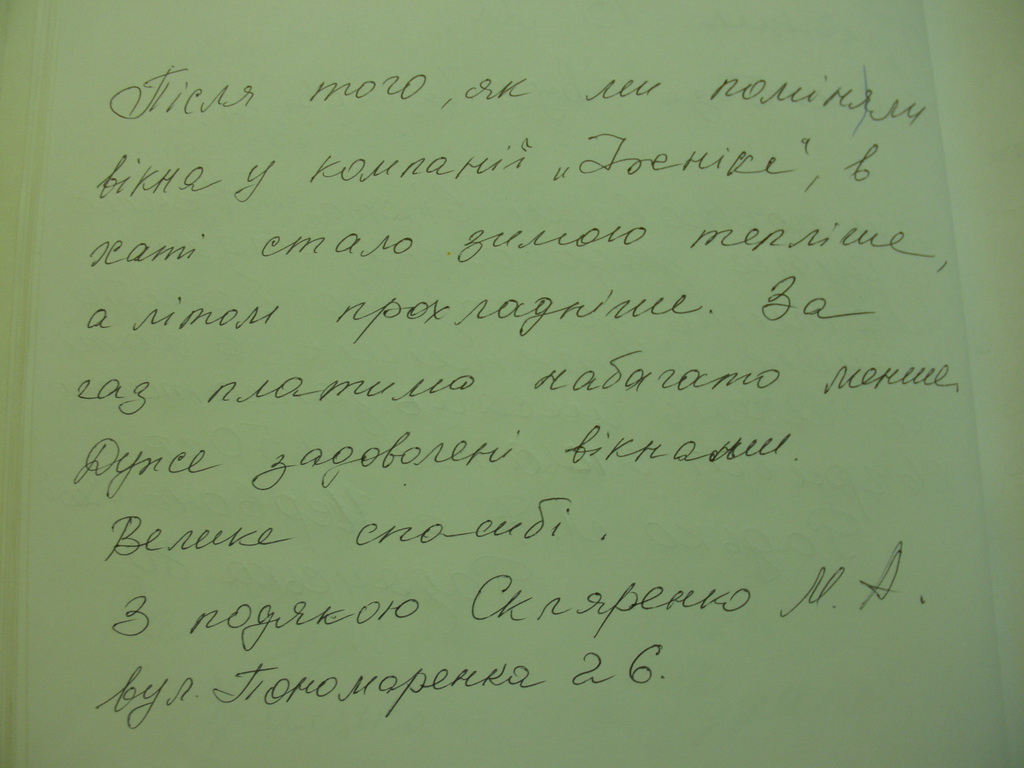 Після того, як ми поміняли
вікна у компанії „Ізеніке“, в
хаті стало зимою тепліше,
а літом прохладніше. За
газ платимо набагато менше.
Дуже задоволені вікнами.
Велике спасибі.
З подякою Скляренко М. А.
вул. Пономаренка 26.